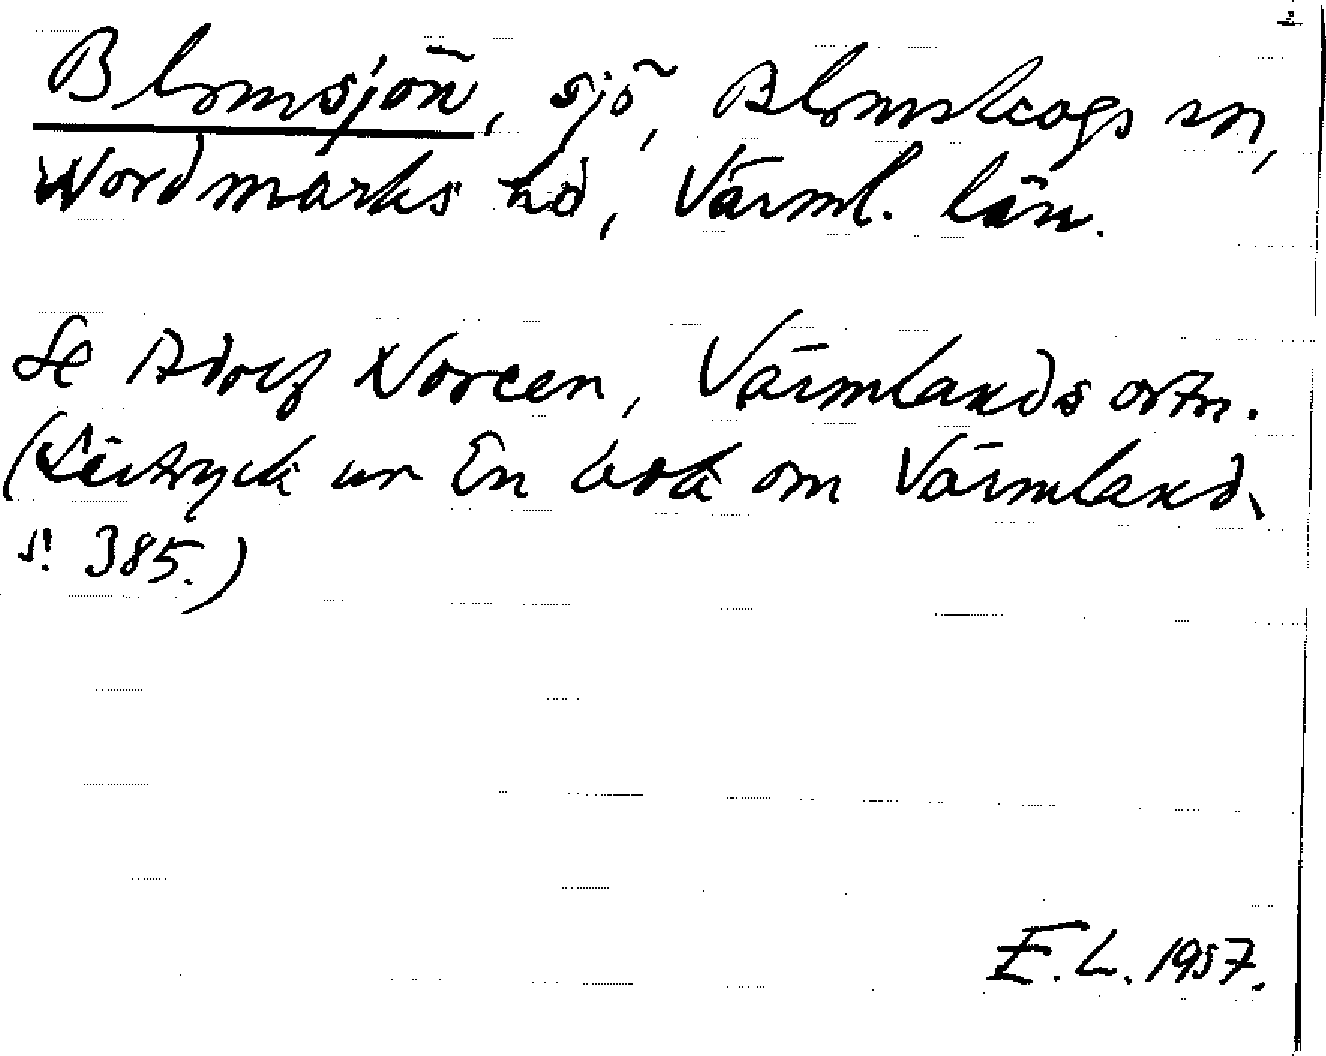 Blomsjön, sjö, Blomskogs sn,
Nordmarks hd, Värml. län.
Se Adolf Noreen, Värmlands ortn.
(Särtryck ur En bok om Värmland,
s. 385.)
E.L. 1957.